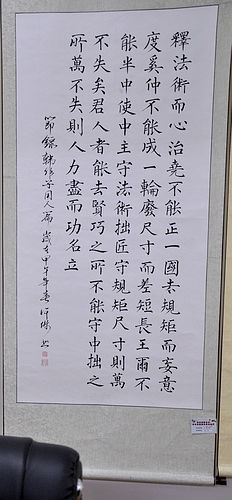 釋法術而心治堯不能正一國去規矩而妄意
度奚仲不能成一輪廢尺寸而差短長王爾不
能半中使中主守法術拙匠守規矩尺寸則萬
不失矣君人者能去賢巧之所不能守中拙之
所萬不失則人力盡而功名立
節錄韓非子用人篇 歲在甲午年春